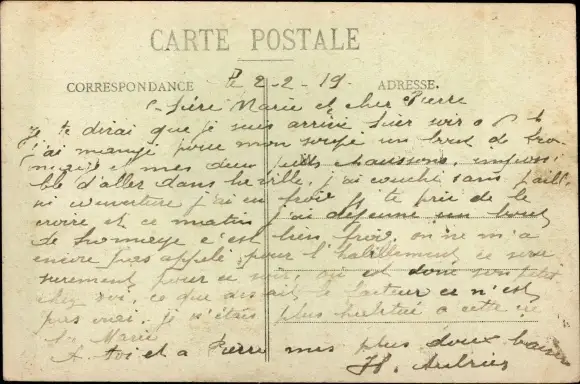 CARTE POSTALE
CORRESPONDANCE Le 2-2-19. ADRESSE.
Chère Marie et cher Pierre
Je te dirai que je suis arrivé hier soir a 6 h
j'ai mangé pour mon soupé un bout de fro
mage et mes deux petits chaussons, impossi
ble d'aller dans la ville, j'ai couché sans paille
ni couverture j'ai eu froid je te prie de le
croire et ce matin j'ai déjeuné un bout
de fromage c'est bien froid, on ne m'a
encore pas appelé pour l'habillement ce sera
surement pour ce soir, où est donc son petit
chez soi, ce que disait le facteur ce n'est
pas vrai. je n'étais plus habitué a cette vie
Marie
A toi et a Pierre mes plus doux baisers
Aubries